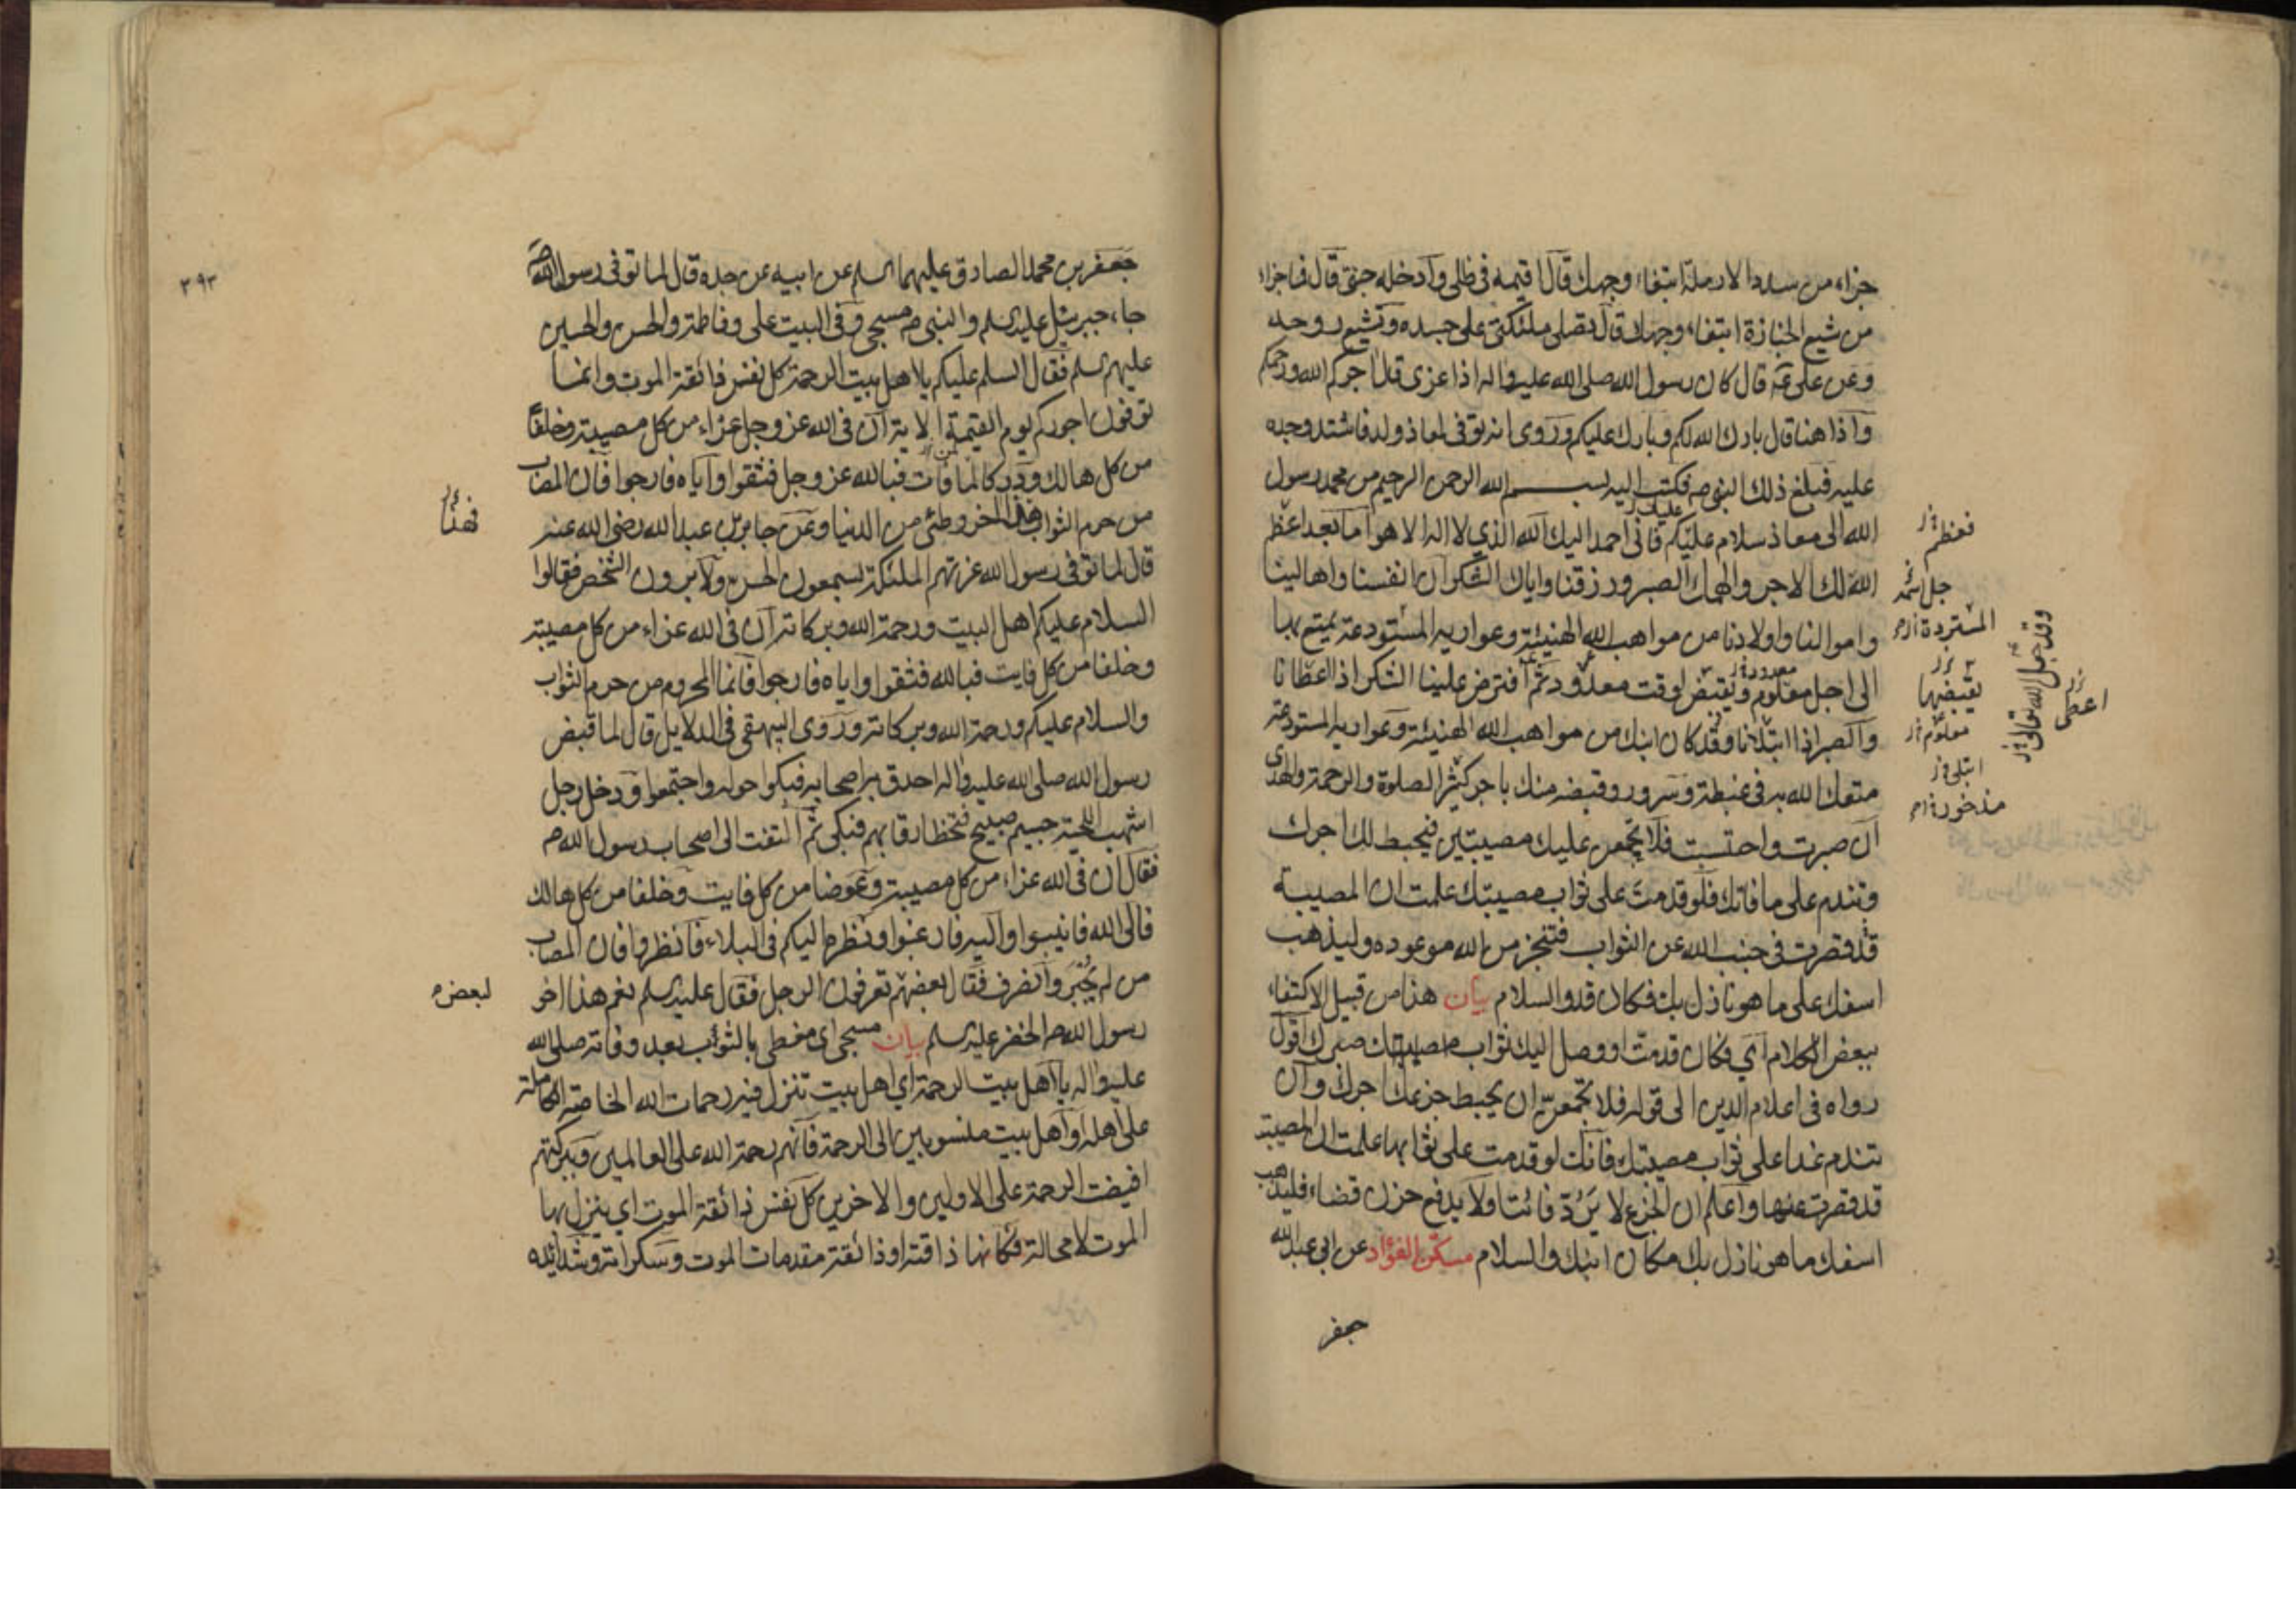 جزاء من سدد الارملة ابتغاء وجهك قال اقيمه في ظلي وادخله جنتي قال فما جزاء
من شيع الجنازة ابتغاء وجهك قال تصلي ملئكتي على جسده وتشيع روحه
وعن علي قال كان رسول الله صلى الله عليه واله اذا عزى قال اجركم الله ورحمكم
واذا هنا قال بارك الله لكم وبارك عليكم وروى انه توفى لمعاذ ولد فاشتد وجده
عليه فبلغ ذلك النبي ص فكتب اليه بسم الله الرحمن الرحيم من محمد رسول
الله الى معاذ سلام عليكم فاني احمد اليك الله الذي لا اله الا هو اما بعد اعظم
الله لك الاجر والهمك الصبر ورزقنا واياك الشكر ان انفسنا واهالينا
واموالنا واولادنا من مواهب الله الهنيئة وعواريه المستودعة يمتع بها
الى اجل معلوم ويقبض لوقت معدود ثم افترض علينا الشكر اذا اعطانا
والصبر اذا ابتلانا وقد كان ابنك من مواهب الله الهنيئة وعواريه المستودعة
متعك الله به في غبطة وسرور وقبضه منك باجر كثير الصلوة والرحمة والهدى
ان صبرت واحتسبت فلا تجمعن عليك مصيبتين فيحبط لك اجرك
وتندم على ما فاتك فلو قدمت على ثواب مصيبتك علمت ان المصيبة
قد قصرت في جنب الله عن الثواب فتنجز من الله موعوده وليذهب
اسفك على ما هو نازل بك فكان قد والسلام بيان هذا من قبيل الاكتفاء
ببعض الكلام اي فكان قد مت او وصل اليك ثواب مصيبتك صبرك اقول
رواه في اعلام الدين الى قوله فلا تجمعن ان يحبط جزعك اجرك وان
تندم غدا على ثواب مصيبتك فانك لو قدمت على ثوابها علمت ان المصيبة
قد قصرت عنها واعلم ان الجزع لا يرد فائتا ولا يدفع حزن قضاء فليذهب
اسفك ما هو نازل بك مكان ابنك والسلام مسكن الفؤاد عن ابي عبد الله
جعفر
فعظم
جل
المستردة
يقبضها
معلوم
ابتلى
مذخور
وقد جعل الله تعالى
اعطى
٣٩٣
جعفر بن محمد الصادق عليهما السلم عن ابيه عن جده قال لما توفى رسول الله ص
جاء جبرئيل عليه السلم والنبي ص مسجى وفي البيت علي وفاطمة والحسن والحسين
عليهم السلم فقال السلم عليكم يا اهل بيت الرحمة كل نفس ذائقة الموت وانما
توفون اجوركم يوم القيمة الاية ان في الله عز وجل عزاء من كل مصيبة وخلفا
من كل هالك ودركا لما فات فبالله عز وجل فثقوا واياه فارجوا فان المصاب
من حرم الثواب هذا اخر وطئي من الدنيا وعن جابر بن عبد الله رضي الله عنه
قال لما توفى رسول الله عزتهم الملئكة يسمعون الحس ولا يرون الشخص فقالوا
السلام عليكم اهل البيت ورحمة الله وبركاته ان في الله عزاء من كل مصيبة
وخلفا من كل فايت فبالله فثقوا واياه فارجوا فانما المحروم من حرم الثواب
والسلام عليكم ورحمة الله وبركاته وروى البيهقي في الدلايل قال لما قبض
رسول الله صلى الله عليه واله احدق به اصحابه فبكوا حوله واجتمعوا ودخل رجل
اشهب اللحية جسيم صبيح فتخطا رقابهم فبكى ثم التفت الى اصحاب رسول الله ص
فقال ان في الله عزاء من كل مصيبة وعوضا من كل فايت وخلفا من كل هالك
فالى الله فانيبوا واليه فارغبوا ونظره اليكم في البلاء فانظروا فان المصاب
من لم يجبر وانصرف فقال بعضهم تعرفون الرجل فقال علي عليه السلم نعم هذا اخو
رسول الله ص الخضر عليه السلم بيان مسجى اي مغطى بالثوب بعد وفاته صلى الله
عليه واله يا اهل بيت الرحمة اي اهل بيت تنزل فيه رحمات الله الخاصة الكاملة
على اهله او اهل بيت منسوبين الى الرحمة فانهم رحمة الله على العالمين وببركتهم
افيضت الرحمة على الاولين والاخرين كل نفس ذائقة الموت اي ينزل بها
الموت لا محالة فكانها ذاقته او ذائقة مقدمات الموت وسكراته وشدايده
فهذا
لبعض